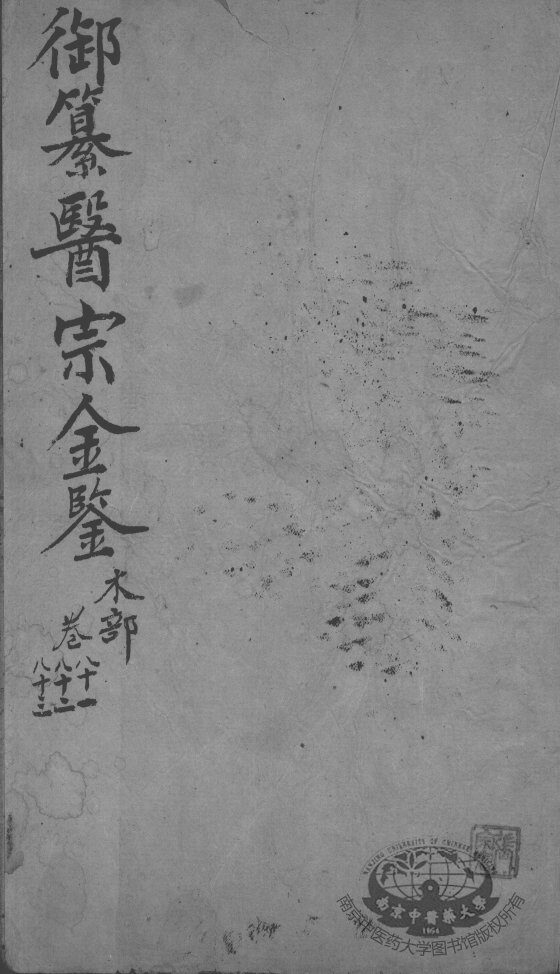 御纂醫宗金鑒
木部
卷
八十一
八十二
八十三
NANJING UNIVERSITY OF CHINESE
南京中醫藥大學
1954
南京中医药大学图书馆版权所有